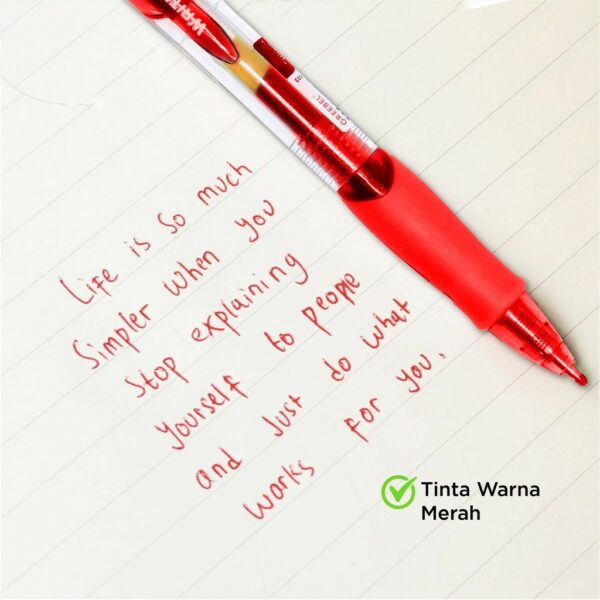 GREEBEL
Life is so much
Simpler when you
Stop explaining
Yourself to people
and Just do what
works for you.
Tinta Warna
Merah